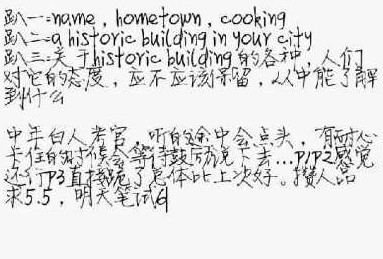 趴一:name, hometown, cooking
趴二:a historic building in your city
趴三:关于historic building的各种，人们
对它的态度，应不应该保留，从中能了解
到什么
中年白人考官，听的途中会点头，有耐心
卡住的时候会等待鼓励说下去...P1P2感觉
还行P3直接跪了总体比上次好。攒人品
求5.5，明天笔试6